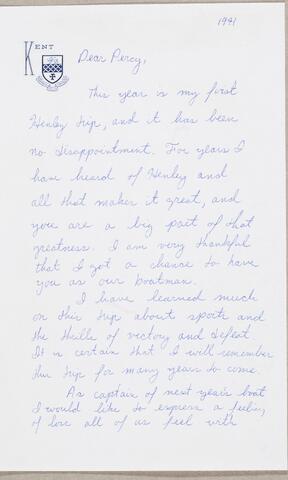 1981
KENT
Dear Percy,
This year is my first
Henley trip, and it has been
no disappointment. For years I
have heard of Henley and
all that makes it great, and
you are a big part of that
greatness. I am very thankful
that I got a chance to have
you as our boatman.
I have learned much
on this trip about sports and
the thrills of victory and defeat.
It is certain that I will remember
this trip for many years to come.
As captain of next year's boat
I would like to express a feeling
of love all of us feel with